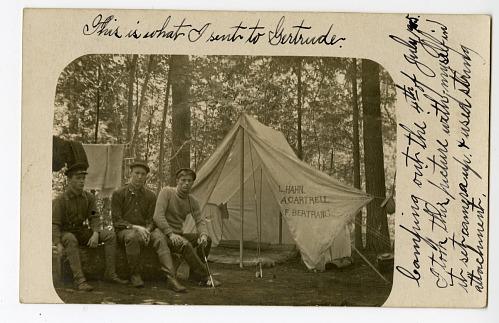 This is what I sent to Gertrude.
L. HAHN.
A. CARTRELL
F. BERTRAND
Camping out the 4th of July
I took this picture with myself in
it set camera up & used string
attachment.